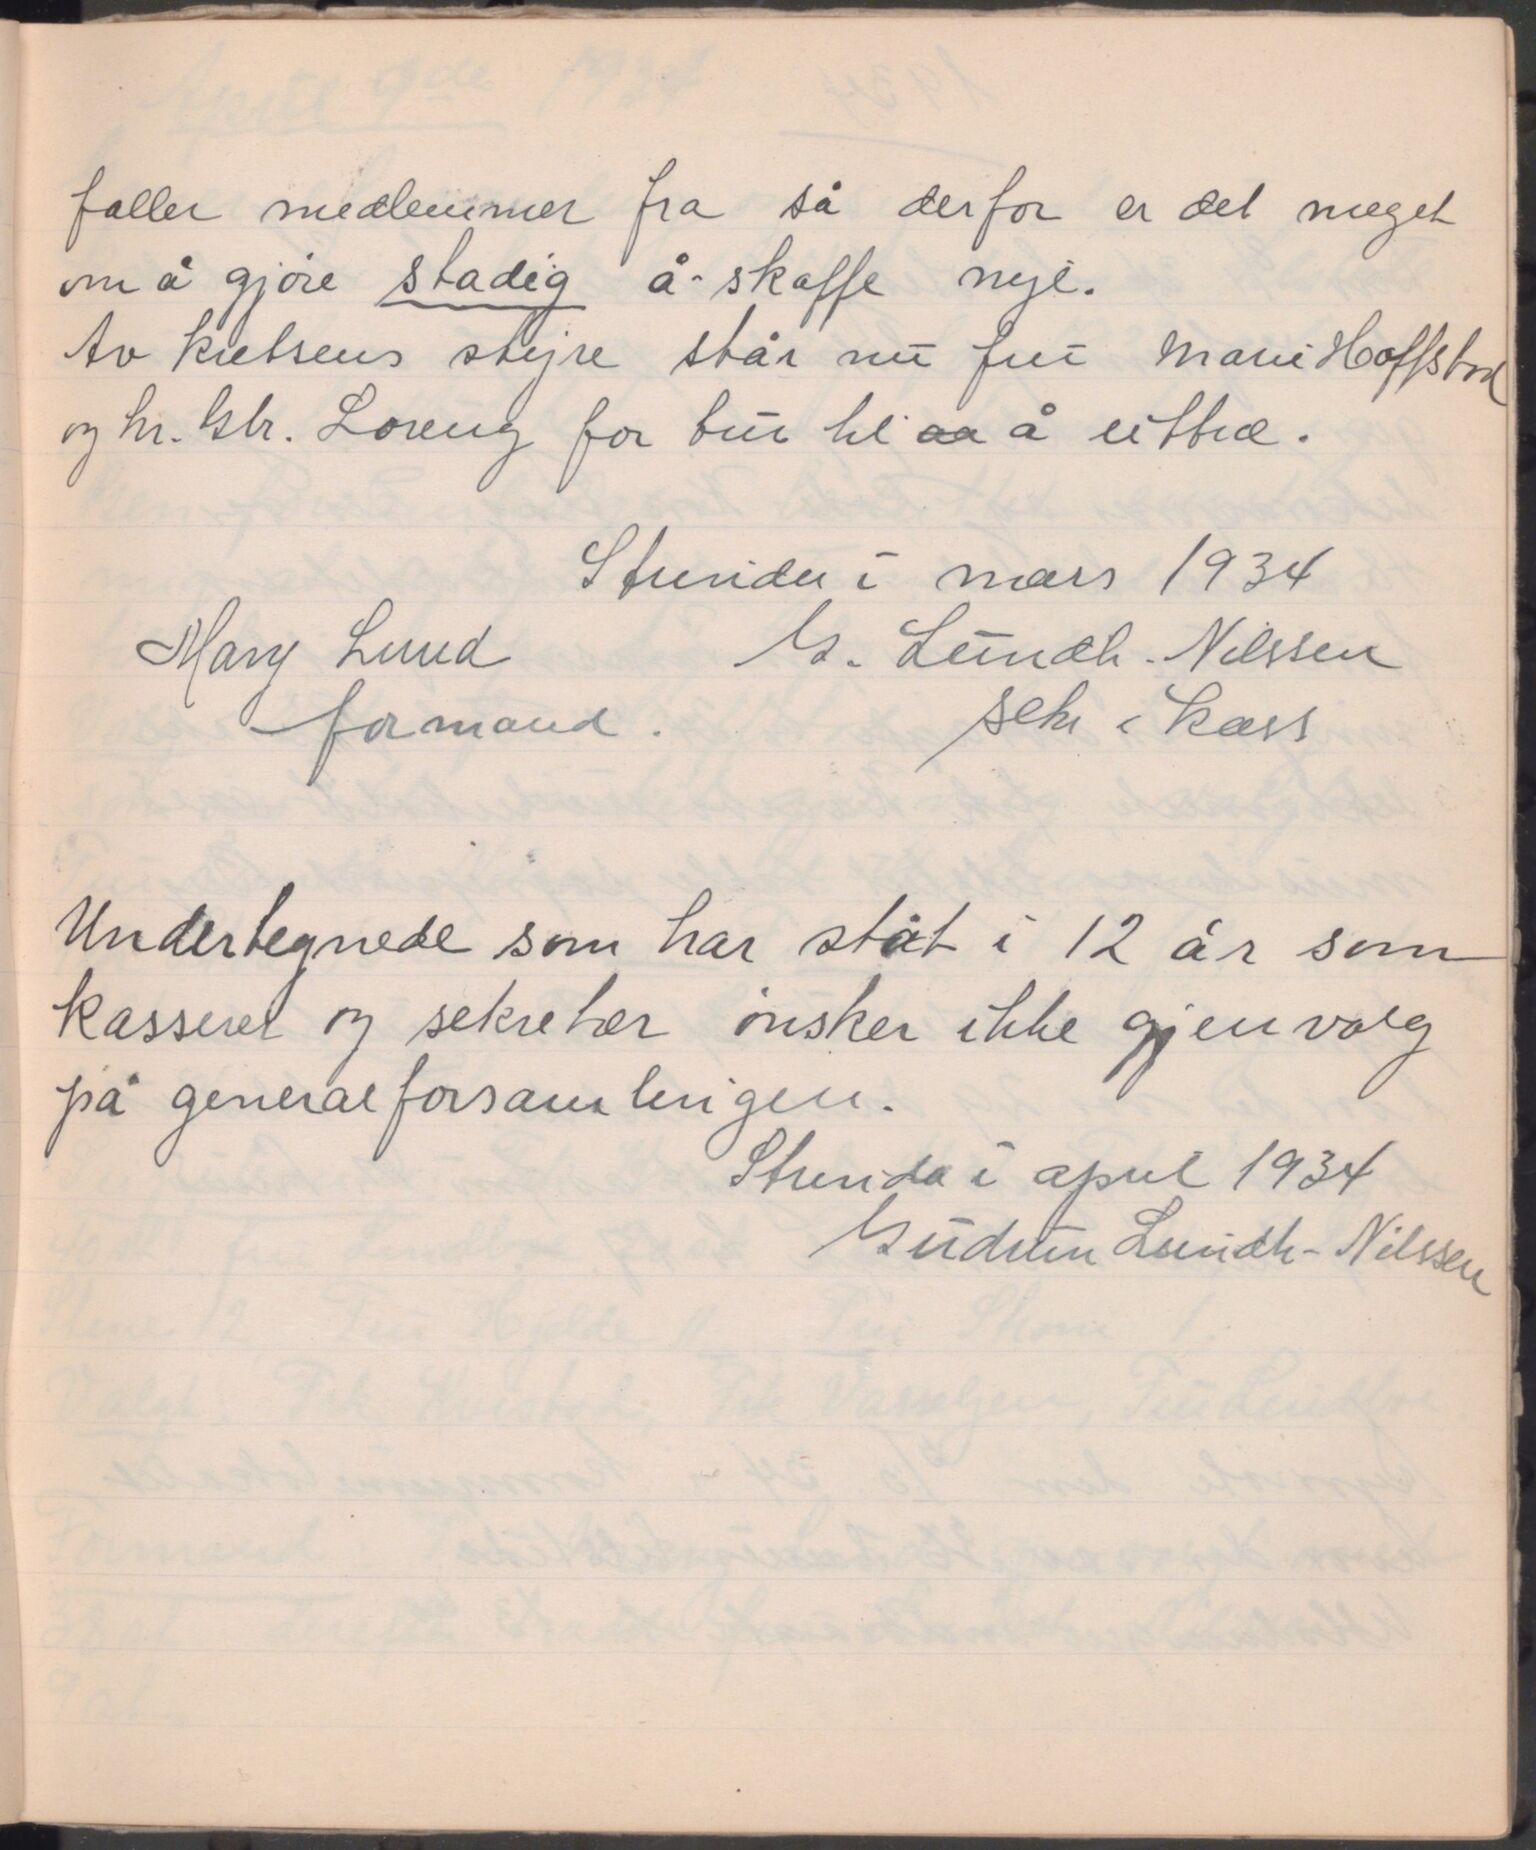 faller medlemmer fra så derfor er det meget
om å gjøre stadig å skaffe nye.
Av kretsens styre står nu fru Marie Hoffstad
og hr. Gbr. Loreng for tur til aa å uttræ.
Strinda i mars 1934
Mary Lund G. Lundh-Nilssen
formand. sekr i kass
Undertegnede som har ståt i 12 år som
kasserer og sekretær ønsker ikke gjenvalg
på generalforsamlingen.
Strinda i april 1934
Gudrun Lundh-Nilssen